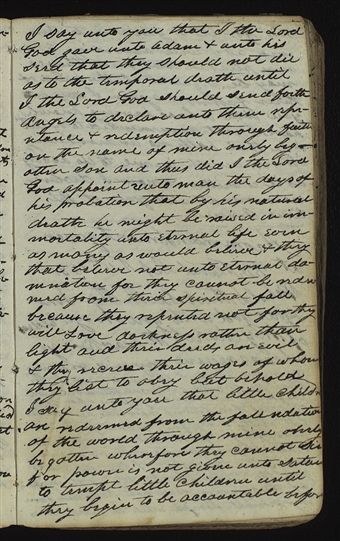 I say unto you that I the Lord
God gave unto Adam & unto his
seed that they should not die
as to the temporal death until
I the Lord God should send forth
Angels to declare unto them repe
ntance & redemption through faith
on the name of mine only beg
otten Son and thus did I the Lord
God appoint unto man the days of
his probation that by his natural
death he might be raised in im
mortality unto eternal life even
as many as would believe & they
that believe not unto eternal da
mnation for they cannot be rede
med from their spiritual fall
because they repented not for they
will love darkness rather than
light and their deeds are evil
& they receive their wages of whom
they list to obey but behold
I say unto you that little childr
are redeemed from the foundation
of the world through mine only
begotten wherefore they cannot sin
for power is not given unto Satan
to tempt little children until
they begin to be accountable befor